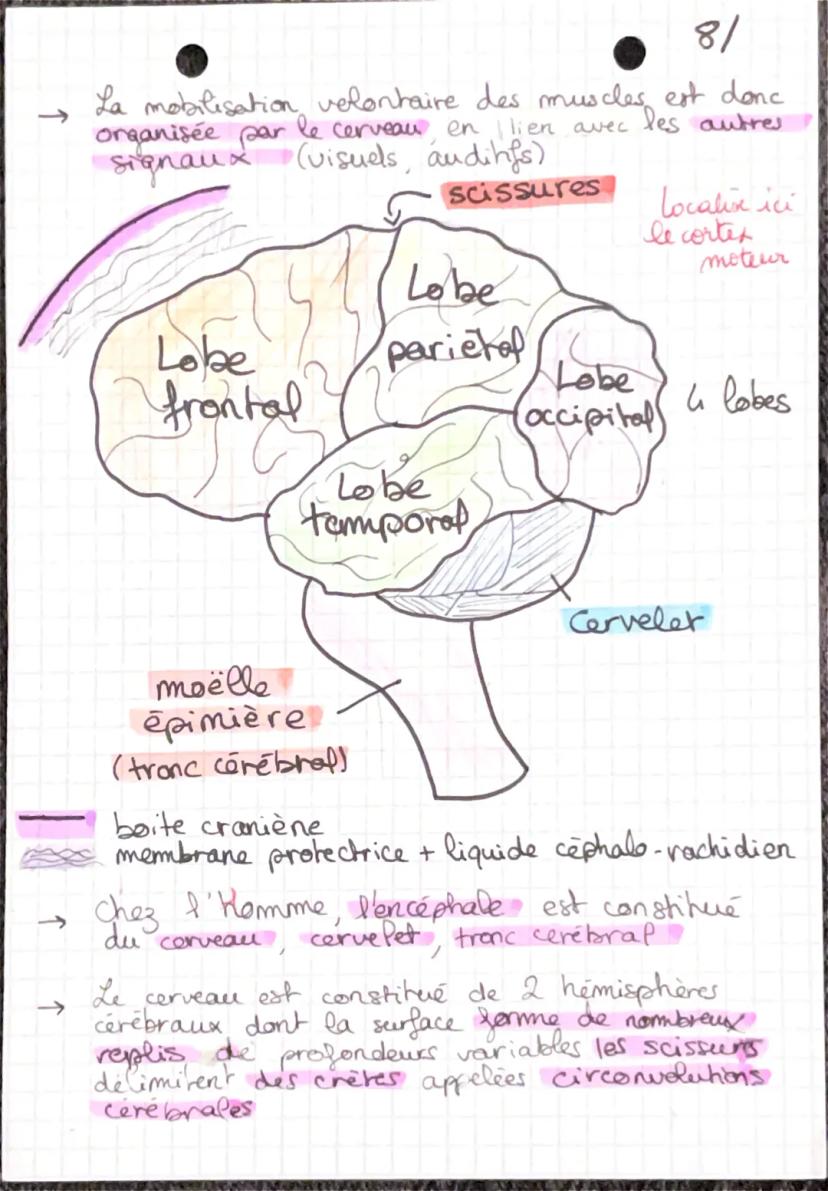 8/
→ La mobilisation volontaire des muscles est donc
organisée par le cerveau, en lien avec les autres
signaux (visuels, auditifs)
scissures
Localise ici
le cortex
moteur
Lobe
frontal
Lobe
pariétal
Lobe
occipital
4 lobes
Lobe
temporal
Cervelet
moëlle
épinière
(tronc cérébral)
boite cranième
membrane protectrice + liquide céphalo-rachidien
→ Chez l'Homme, l'encéphale est constitué
du cerveau, cervelet, tronc cérébral
→ Le cerveau est constitué de 2 hémisphères
cérébraux dont la surface forme de nombreux
replis de profondeurs variables les scissures
délimitent des crêtes appelées circonvolutions
cérébrales